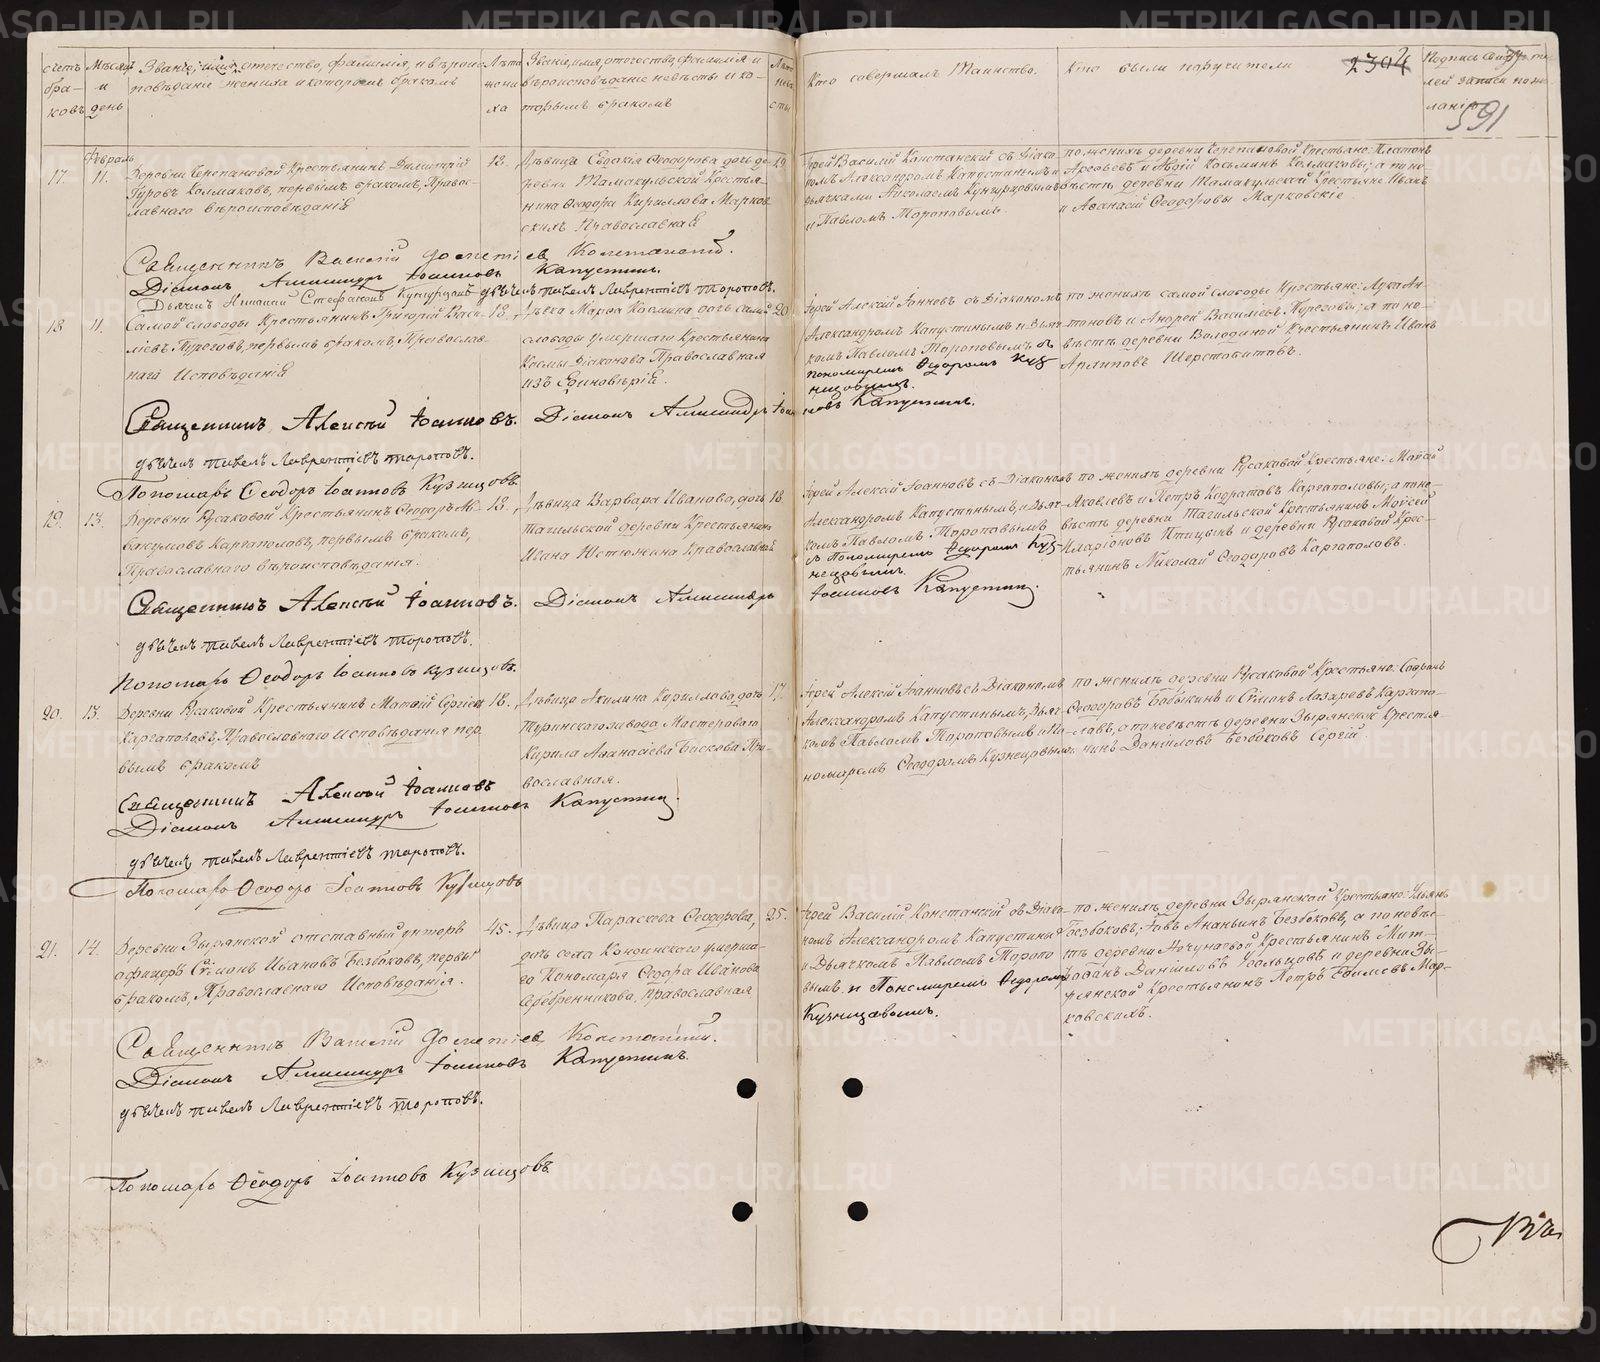 счетъ браковъ
Мѣсяцъ и день
Званіе, имя, отечество, фамилія, и вѣроисповѣданіе жениха и которымъ бракомъ
Лѣта жениха
Званіе, имя, отечество, фамилія и вѣроисповѣданіе невѣсты и которымъ бракомъ
Лѣта невѣсты
Кто совершалъ Таинство.
Кто были поручители
2304
591
Февраль
17.
11.
Деревни Черепановой Крестьянинъ Димитрій
Гуровъ Колмаковъ, первымъ бракомъ, Право-
славнаго вѣроисповѣданія
18.
Дѣвица Евдокія Ѳеодорова дочь де-
ревни Мамакульской Крестья-
нина Ѳеодора Кириллова Марков-
скихъ Православная
19.
Іерей Василій Констанскій съ Діако-
номъ Александромъ Капустинымъ и
дьячками Николаемъ Кунгурцовымъ
и Павломъ Тороповымъ.
по женихѣ деревни Черепановой Крестьяне: Платонъ
Колмаковы; а по не-
вѣстѣ деревни Мамакульской Крестьяне Иванъ
и Аѳанасій Ѳеодоровы Марковскіе
Священникъ Василій Констанскій.
Діаконъ Александръ Іоанновъ Капустинъ.
Дьячекъ Николай Стефановъ дьячекъ павелъ Лаврентіевъ тороповъ.
18
11.
Самой слободы Крестьянинъ Григорій Васи-
ліевъ первымъ бракомъ, Православ-
наго Исповѣданія
18.
Дѣвка Марѳа Космина дочь самой
слободы умершаго Крестьянина
Космы Діаконова Православная
изъ Единовѣрія.
20
Іерей Алексій Іонновъ съ Діакономъ
Александромъ Капустинымъ и Дьяч-
комъ Павломъ Тороповымъ съ
пономаремъ Ѳедоромъ Куз-
нецовымъ.
по женихѣ самой слободы Крестьяне: Лука Ан-
тоновъ и Андрей Василіевъ а по не-
вѣстѣ деревни Володиной Крестьянинъ Иванъ
Архиповъ Шерстобитовъ.
Священникъ Алексѣй Іоанновъ. Діаконъ Александръ Іоанновъ Капустинъ.
дьячекъ павелъ Лаврентіевъ тороповъ.
Пономарь Ѳеодоръ Іоанновъ Кузнецовъ
19.
13.
Деревни Русаковой Крестьянинъ Ѳеодоръ Аб-
бакумовъ Каргаполовъ, первымъ бракомъ,
Православнаго вѣроисповѣданія.
18.
Дѣвица Варвара Иванова, дочь
Тагильской деревни Крестьянина
Ивана Устюжина Православной
18
Іерей Алексій Іоанновъ съ Діакономъ
Александромъ Капустинымъ, и Дьяч-
комъ Павломъ Тороповымъ
съ Пономаремъ Ѳедоромъ Куз-
нецовымъ.
по женихѣ деревни Русаковой Крестьяне:
Яковлевъ и Петръ Кодратовъ Каргаполовы; а по не-
вѣстѣ деревни Тагильской Крестьянинъ Моисей
Иларіоновъ Птицынъ и деревни Русаковой Крес-
тьянинъ Николай Ѳеодоровъ Каргаполовъ.
Священникъ Алексѣй Іоанновъ. Діаконъ Александръ Іоанновъ Капустинъ.
дьячекъ павелъ Лаврентіевъ тороповъ.
Пономарь Ѳеодоръ Іоанновъ Кузнецовъ.
20.
13.
Деревни Русаковой Крестьянинъ Матѳій Сергіевъ
Каргаполовъ, Православнаго Исповѣданія пер-
вымъ бракомъ
18.
Дѣвица Акилина Кириллова, дочь
Туринскаго завода Мастероваго
Кирила Аѳанасіева Баскова Пра-
вославная.
17
Іерей Алексій Іоанновъ съ Діакономъ
Александромъ Капустинымъ, Дьяч-
комъ Павломъ Тороповымъ и По-
номаремъ Ѳеодоромъ Кузнецовымъ.
по женихѣ деревни Русаковой Крестьяне: Софронъ
Ѳеодоровъ Бабыкинъ и Симонъ Лазаревъ Каргапо-
ловъ, а по невѣстѣ деревни Зырянской Крестья-
нинъ Даніиловъ Беззбоковъ Сергій
Священникъ Алексѣй Іоанновъ
Діаконъ Александръ Іоанновъ Капустинъ.
дьячекъ павелъ Лаврентіевъ тороповъ.
Пономарь Ѳеодоръ Іоанновъ Кузнецовъ
21.
14.
Деревни Зырянской отставный унтеръ
офицеръ Симонъ Ивановъ Беззбоковъ, первымъ
бракомъ, Православнаго Исповѣданія.
45.
Дѣвица Параскева Ѳеодорова,
дочь села Кондинскаго умерша-
го Пономаря Ѳедора Иванова
Серебренникова, Православная
25.
Іерей Василій Констанскій съ Діако-
номъ Александромъ Капустинымъ
и Дьячкомъ Павломъ Торопо-
вымъ и Пономаремъ Ѳедоромъ
Кузнецовымъ.
по женихѣ деревни Зырянской Крестьяне: Ульянъ
Беззбоковъ, Іовъ Ананьинъ Беззбоковъ, а по невѣс-
тѣ деревни Крестьянинъ Мит-
рофанъ Даніиловъ и деревни Зы-
рянской Крестьянинъ Петръ Евимовъ Мар-
ковскихъ.
Священникъ Василій Констанскій.
Діаконъ Александръ Іоанновъ Капустинъ.
дьячекъ павелъ Лаврентіевъ тороповъ.
Пономарь Ѳеодоръ Іоанновъ Кузнецовъ
METRIKI.GASO-URAL.RU